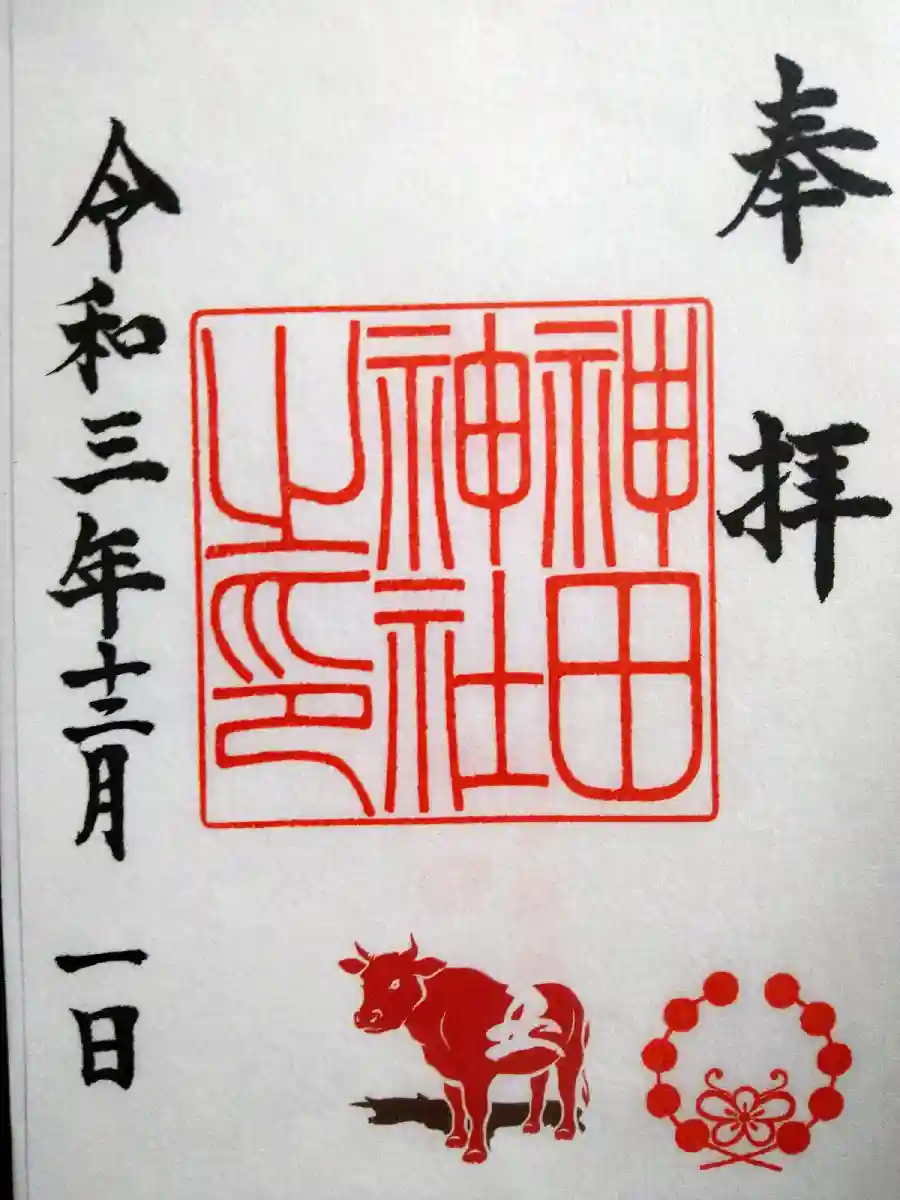 奉拝
神田
神社
之印
丑
令和三年十二月一日